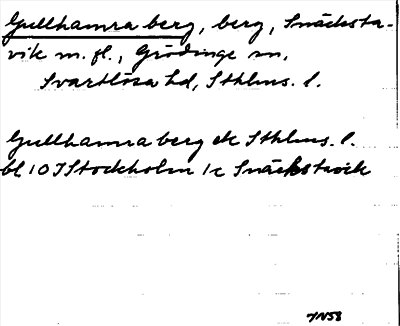 Gullhamra berg, berg, Snäcksta-
vik m. fl., Grödinge sn,
Svartlösa hd, Sthlms. l.
Gullhamra berg ek Sthlms. l.
bl 10 I Stockholm 1c Snäckstavik